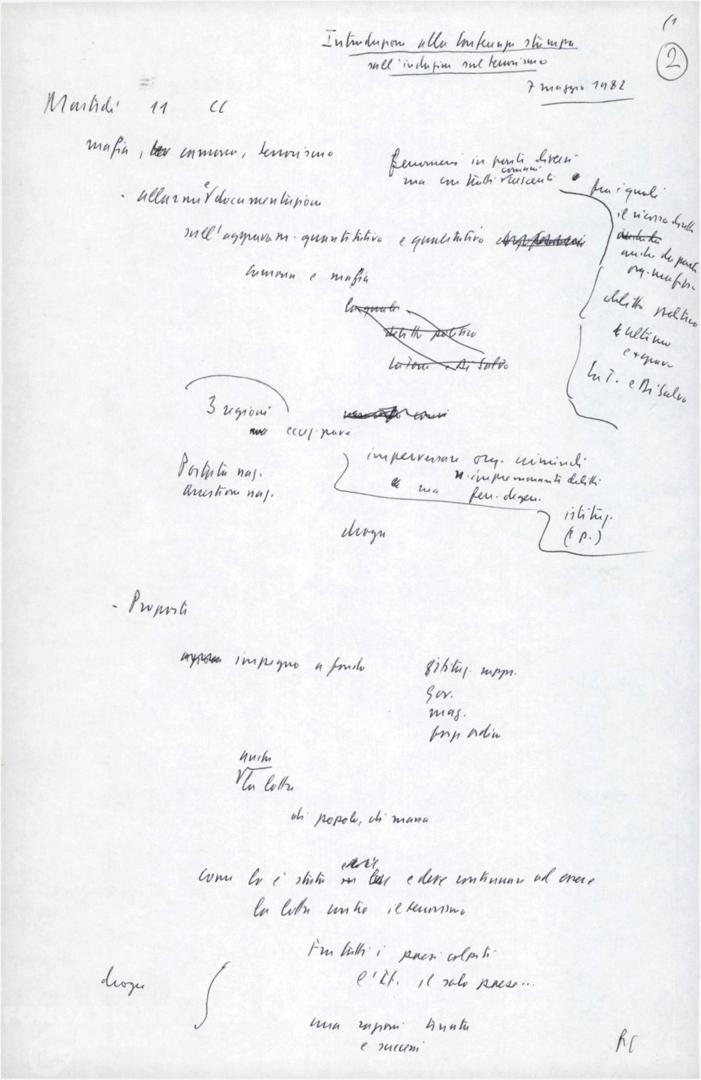 (1
2
Introduzione alla Conferenza stampa
sull'indagine sul terrorismo
7 maggio 1982
Martedì 11 CC
mafia, camorra, terrorismo
fenomeni in parte diversi
ma con tratti comuni crescenti
fra i quali
il ricorso
anche da parte
org. mafiose
delitto politico
ultimo
La T. e Di Salvo
- allarme e documentazione
sull'aggravam. quantitativo e qualitativo
camorra e mafia
delitto politico
La Torre e Di Salvo
3 regioni
Portata naz.
Question naz.
imperversare org. criminali
impressionanti delitti
ma fen. degen.
istituz.
(e p.)
droga
- Proposte
impegno a fondo
istituz. rappr.
Gov.
mag.
forze ordine
anche
la lotta
di popolo, di massa
come lo è stata e deve continuare ad essere
la lotta contro il terrorismo
Fra tutti i paesi colpiti
l'It. il solo paese...
droga
una ragioni tenuta
e successi